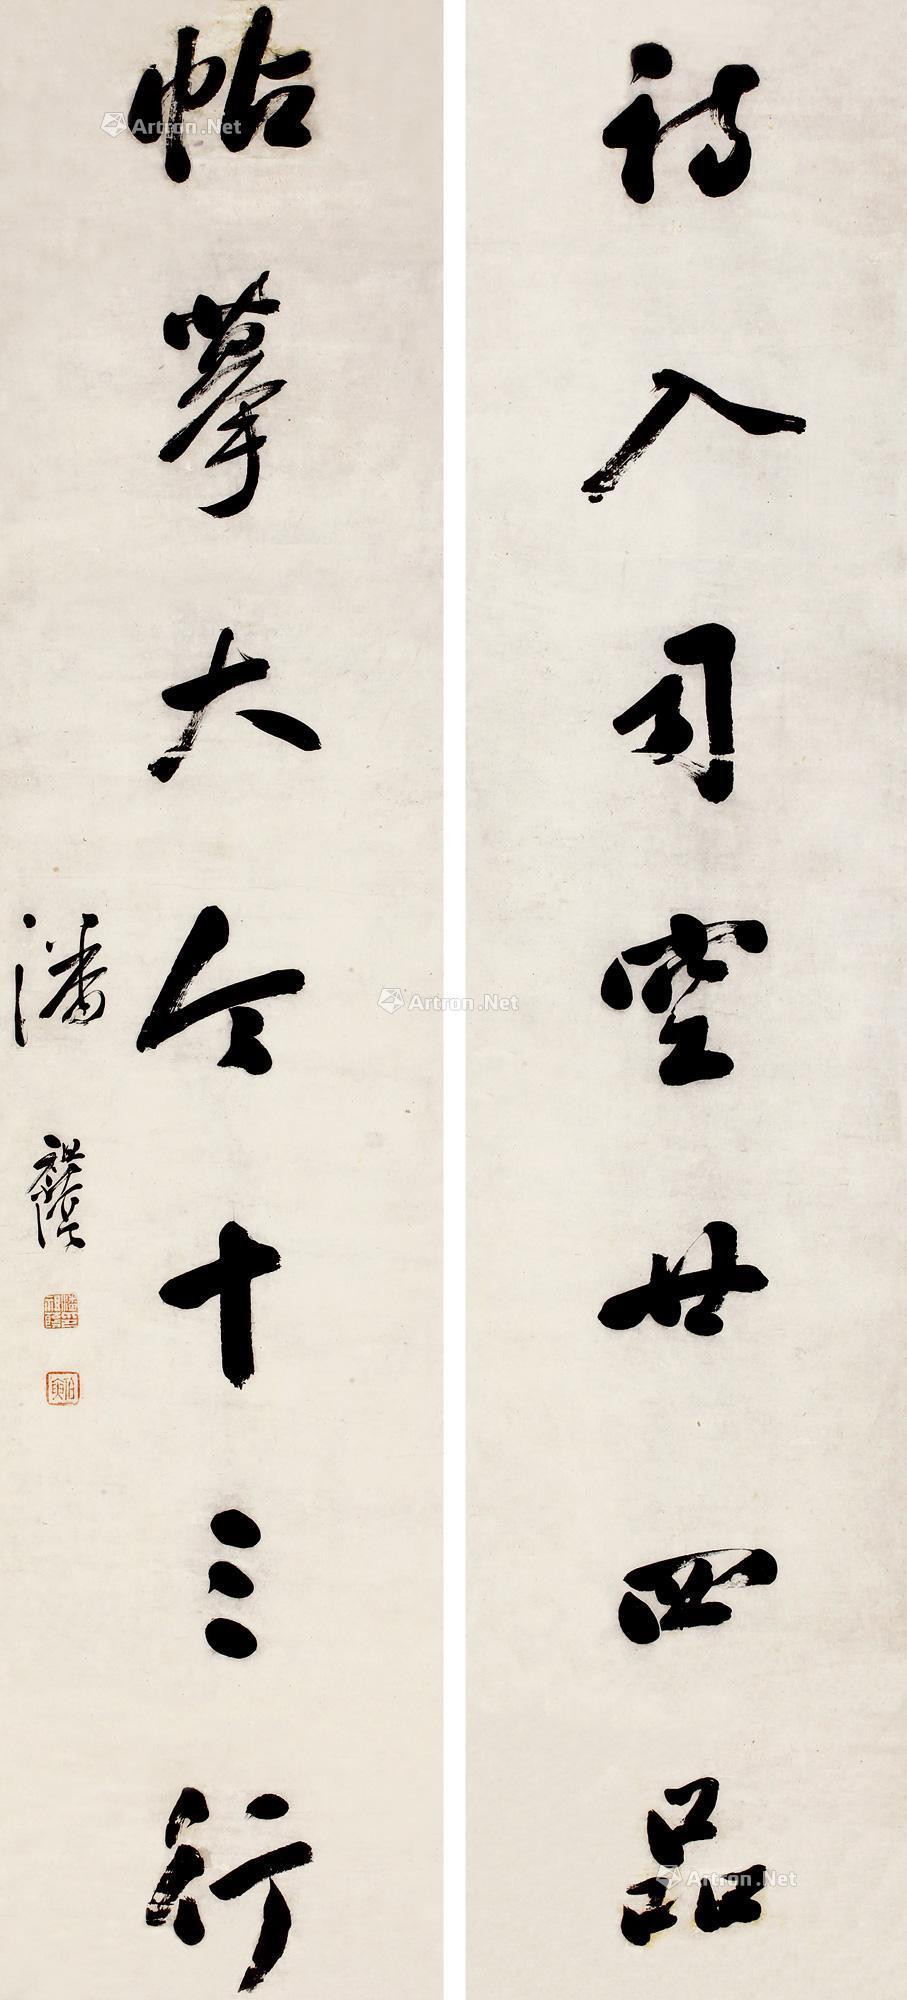 詩入司空廿四品
帖摹大令十三行
潘祖蔭
潘祖蔭
伯寅
Artron.Net
Artron.Net
Artron.Net